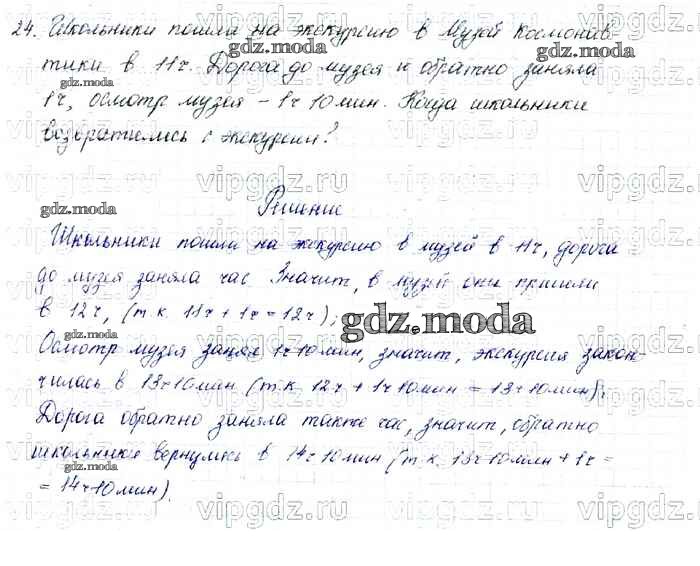 24. Школьники пошли на экскурсию в Музей Космонав-
тики в 11ч. Дорога до музея и обратно заняла
1ч, осмотр музея - 1ч 10мин. Когда школьники
возвратились с экскурсии?
Решение
Школьники пошли на экскурсию в музей в 11ч, дорога
до музея заняла час. Значит, в музей они пришли
в 12ч, (т.к. 11ч + 1ч = 12ч);
Осмотр музея занял 1ч10мин, значит, экскурсия закон-
чилась в 13ч10мин (т.к. 12ч + 1ч10мин = 13ч10мин);
Дорога обратно заняла также час, значит, обратно
школьники вернулись в 14ч10мин (т.к. 13ч10мин + 1ч =
= 14ч10мин).
gdz.moda
vipgdz.ru